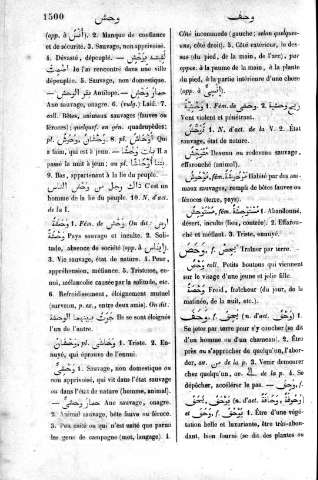 1500
وحش
وحف
(opp. à أُنْسٌ). 2. Manque de confiance
et de sécurité. 3. Sauvage, non apprivoisé.
4. Dévasté, dépeuplé.
Je l'ai rencontré dans une ville
dépeuplée. 5. Sauvage, non domestique.
Antilope. —
Ane sauvage, onagre. 6. (vulg.) Laid. 7.
coll. Bêtes, animaux sauvages (fauves ou
féroces); quelquef. en gén. quadrupèdes;
pl. 8. Qui
a faim, qui est à jeun. — Il a
passé la nuit à jeun; au pl.
9. Bas, appartenant à la lie du peuple.
C'est un
homme de la lie du peuple. 10. N. d'act.
de la I.
وَحْشَةٌ 1. Fém. de وَحْشٌ. On dit:
Pays sauvage et inculte. 2. Soli-
tude, absence de société (opp. à إيناس).
3. Vie sauvage, état de nature. 4. Peur,
appréhension, méfiance. 5. Tristesse, en-
nui, mélancolie causée par la solitude, etc.
6. Refroidissement, éloignement mutuel
(survenu, p. ex., entre deux amis). On dit:
Ils se sont éloignés
l'un de l'autre.
1. Triste. 2. En-
nuyé, qui éprouve de l'ennui.
وَحْشِيٌّ 1. Sauvage, non domestique ou
non apprivoisé, qui vit dans l'état sauvage
ou dans l'état de nature (homme, animal).
— Ane sauvage, onagre.
2. Animal sauvage, bête fauve ou féroce.
3. Peu usité ou qui n'est usité que parmi
les gens de campagne (mot, langage). 4.
Côté incommode (gauche; selon quelques-
uns, côté droit). 5. Côté extérieur, le des-
sus (du pied, de la main, de l'arc), par
oppos. à la paume de la main, à la plante
du pied, à la partie intérieure d'une chose
(opp. à أنسى).
وَحْشِيَّةٌ 1. Fém. de وَحْشِيٌّ. 2.
Vent violent et pénétrant.
تَوَحُّشٌ 1. N. d'act. de la V. 2. État
sauvage, état de nature.
Devenu ou redevenu sauvage,
effarouché (animal).
Habité par des ani-
maux sauvages, rempli de bêtes fauves ou
féroces (terre, pays).
1. Abandonné,
désert, inculte (lieu, contrée). 2. Effarou-
ché et méfiant. 3. Triste, ennuyé.
Traîner par terre. —
coll. Petits boutons qui viennent
sur le visage d'une jeune et jolie fille.
Froid, fraîcheur (du jour, de la
matinée, de la nuit, etc.).
1.
Se jeter par terre pour s'y coucher (se dit
d'un homme ou d'un chameau). 2. Être
près ou s'approcher de quelqu'un, l'abor-
der, av. de la p. 3. Venir demeurer
chez quelqu'un, av. de la p. 4. Se
dépêcher, accélérer le pas. —
(n. d'act.
1. Être d'une végé-
tation belle et luxuriante, être très-abon-
dant, bien fourni (se dit des plantes ou